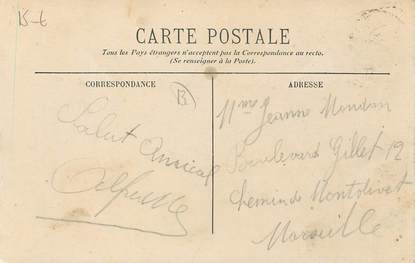 B-6
CARTE POSTALE
Tous les Pays étrangers n'acceptent pas la Correspondance au recto.
(Se renseigner à la Poste).
CORRESPONDANCE
ADRESSE
B
Salut Amical
Mme Jeanne
Boulevard Gillet 12
Chemin de Montolivet
Marseille